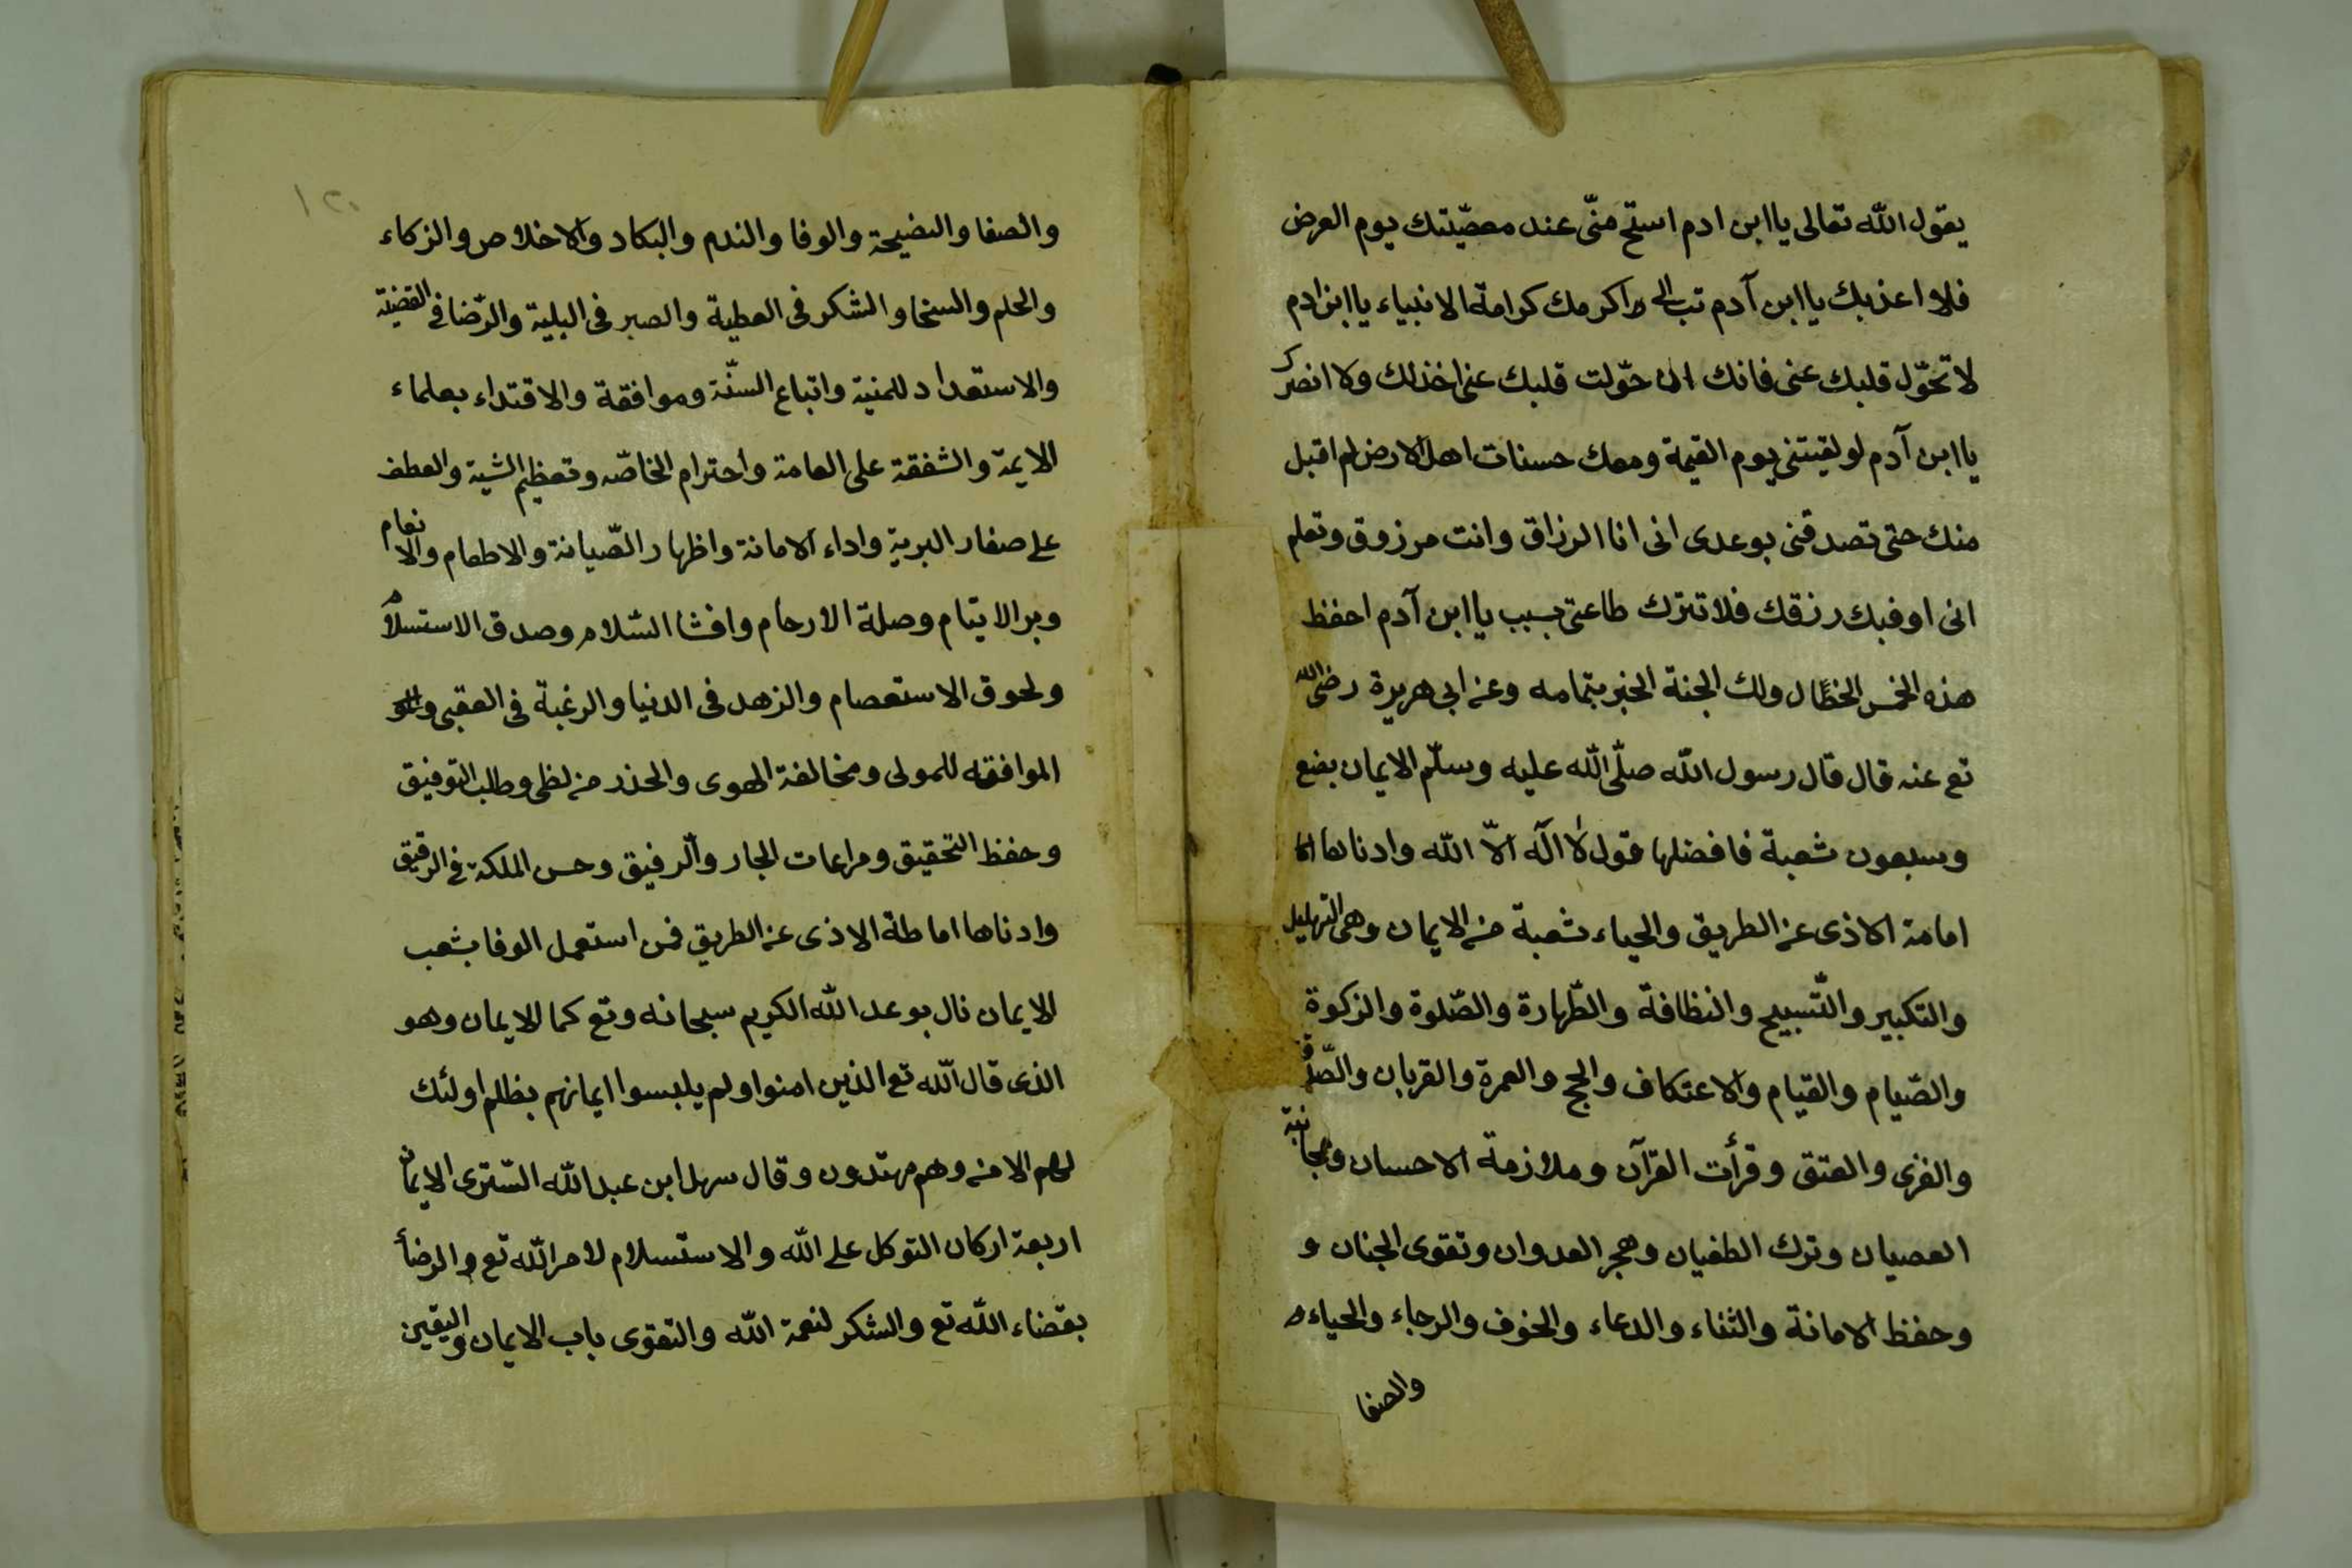 يقول الله تعالى يا ابن ادم استح منّى عند معصيتك يوم العرض
فلا اعذبك يا ابن آدم تب الى اكرمك كرامة الانبياء يا ابن ادم
لا تحوّل قلبك عنى فانك ان حوّلت قلبك عنى اخذلك ولا انصرك
يا ابن آدم لو لقيتنى يوم القيمة ومعك حسنات اهل الارض لم اقبل
منك حتى تصدقنى بوعدى انى انا الرزاق وانت مرزوق وتعلم
انى اوفيك رزقك فلا تترك طاعتى بسبب يا ابن آدم احفظ
هذه الخمس الخصال ولك الجنة الخبر بتمامه وعن ابى هريرة رضى الله
تع عنه قال قال رسول الله صلّى الله عليه وسلّم الايمان بضع
وسبعون شعبة فافضلها قول لا اله الّا الله وادناها
امامة الاذى عن الطريق والحياء شعبة من الايمان وهى التهليل
والتكبير والتّسبيح والنظافة والطّهارة والصّلوة والزكوة
والصّيام والقيام والاعتكاف والحج والعمرة والقربان والصّدقة
والغزى والعتق وقرأت القرآن وملازمة الاحسان ومجانبة
العصيان وترك الطغيان وهجر العدوان وتقوى الجنان و
وحفظ الامانة والثناء والدعاء والخوف والرجاء والحياء
والصفا
١٢٠
والصفا والنصيحة والوفا والندم والبكاد والاخلاص والزكاء
والحلم والسخا والشكر فى العطية والصبر فى البلية والرّضا فى القضية
والاستعداد للمنية واتباع السنّة وموافقة والاقتداء بعلماء
الايمة والشفقة على العامة واحترام الخاصّه وتعظيم الشية والعطف
على صغار البرية واداء الامانة واظهار الصّيانة والاطعام والانعام
وبر الايتام وصلة الارحام وافشا السّلام وصدق الاستسلام
ولحوق الاستعصام والزهد فى الدنيا والرغبة فى العقبى
الموافقه للمولى ومخالفة الهوى والحذر من لظى وطلب التوفيق
وحفظ التحقيق ومراعات الجار والرفيق وحسن الملكة فى الرقيق
وادناها اماطة الاذى عن الطريق فمن استعمل الوفا بشعب
الايمان نال بوعد الله الكريم سبحانه وتع كمال الايمان وهو
الذى قال الله تع الذين امنوا ولم يلبسوا ايمانهم بظلم اولئك
لهم الامن وهم مهتدون وقال سهل ابن عبد الله التسترى الايمان
اربعة اركان التوكل على الله والاستسلام لامر الله تع والرضأ
بقضاء الله تع والشكر لنعمة الله والتقوى باب الايمان واليقين